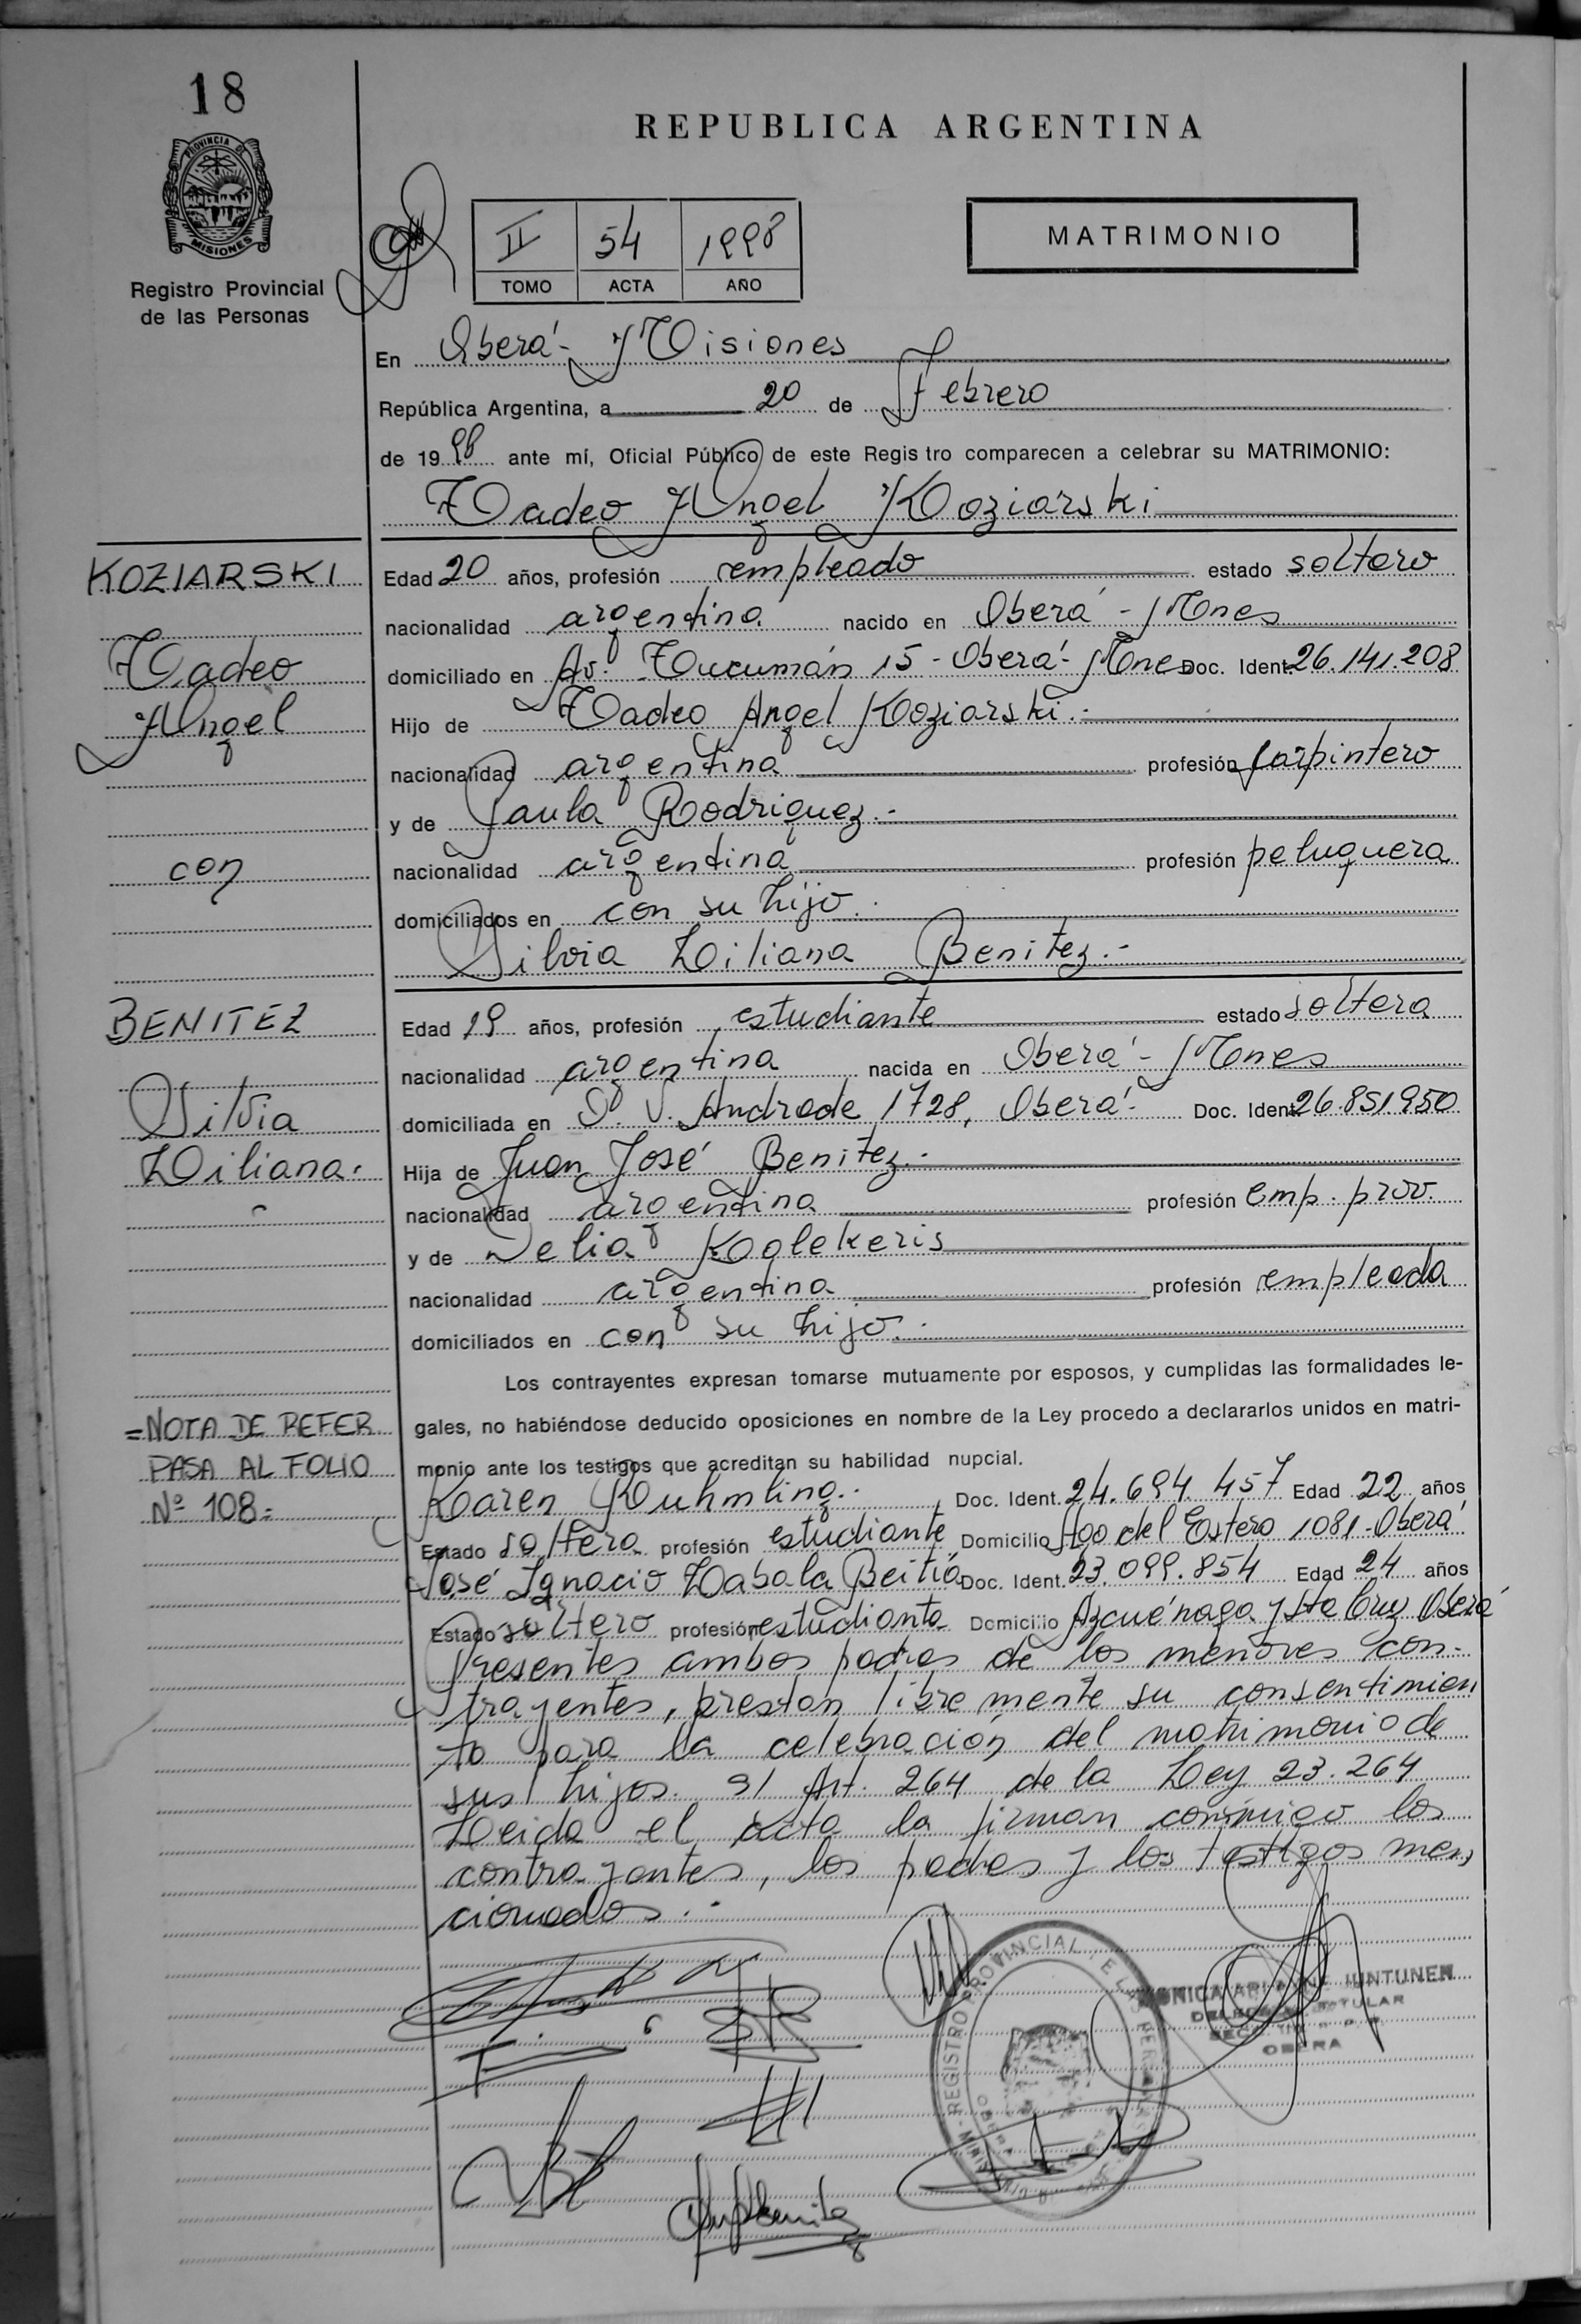 18
REPUBLICA ARGENTINA
PROVINCIA DE
MISIONES
Registro Provincial
de las Personas
II 54 1998
TOMO ACTA AÑO
MATRIMONIO
En Oberá - Misiones
República Argentina, a 20 de Febrero
de 1998 ante mí, Oficial Público de este Regis tro comparecen a celebrar su MATRIMONIO:
Tadeo Angel Koziarski
KOZIARSKI
Tadeo
Angel
con
Edad 20 años, profesión empleado estado soltero
nacionalidad argentina nacido en Oberá - Mnes
domiciliado en Av. Tucumán 15 - Oberá - Mnes Doc. Ident. 26.141.208
Hijo de Tadeo Angel Koziarski.-
nacionalidad argentina profesión Carpintero
y de Paula Rodriguez.-
nacionalidad argentina profesión peluquera
domiciliados en con su hijo.
Silvia Liliana Benitez.-
BENITEZ
Silvia
Liliana.
Edad 19 años, profesión estudiante estado soltera
nacionalidad argentina nacida en Oberá - Mnes
domiciliada en O. V. Andrade 1728, Oberá - Doc. Ident. 26.851.950
Hija de Juan José Benitez.-
nacionalidad argentina profesión emp. prov.
y de Delia Kolekeris
nacionalidad argentina profesión empleada
domiciliados en con su hijo.-
Los contrayentes expresan tomarse mutuamente por esposos, y cumplidas las formalidades le-
gales, no habiéndose deducido oposiciones en nombre de la Ley procedo a declararlos unidos en matri-
monio ante los testigos que acreditan su habilidad nupcial.
=NOTA DE REFER
PASA AL FOLIO
Nº 108=
Karen Kuhmling.- Doc. Ident. 24.694.457 Edad 22 años
Estado soltera profesión estudiante Domicilio Sgo del Estero 1081 - Oberá
José Ignacio Zabala Beitia Doc. Ident. 23.099.854 Edad 24 años
Estado soltero profesión estudiante Domicilio Azcuénaga y Sta Cruz Oberá
Presentes ambos padres de los menores con-
trayentes, prestan libremente su consentimien
to para la celebración del matrimonio de
sus hijos. s/ Art. 264 de la Ley 23.264
Leida el acta la firman conmigo los
contrayentes, los padres y los testigos men
cionados.-
REGISTRO PROVINCIAL DE LAS PERSONAS
MONICA JUNTUNEN
TITULAR
OBERA